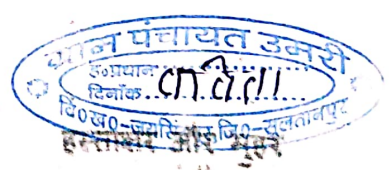 ग्राम पंचायत उमरी
ह०प्रधान
दिनाँक
कविता
वि०ख०-जयसिंहपुर जि०-सुलतानपुर
हस्ताक्षर और मुहर